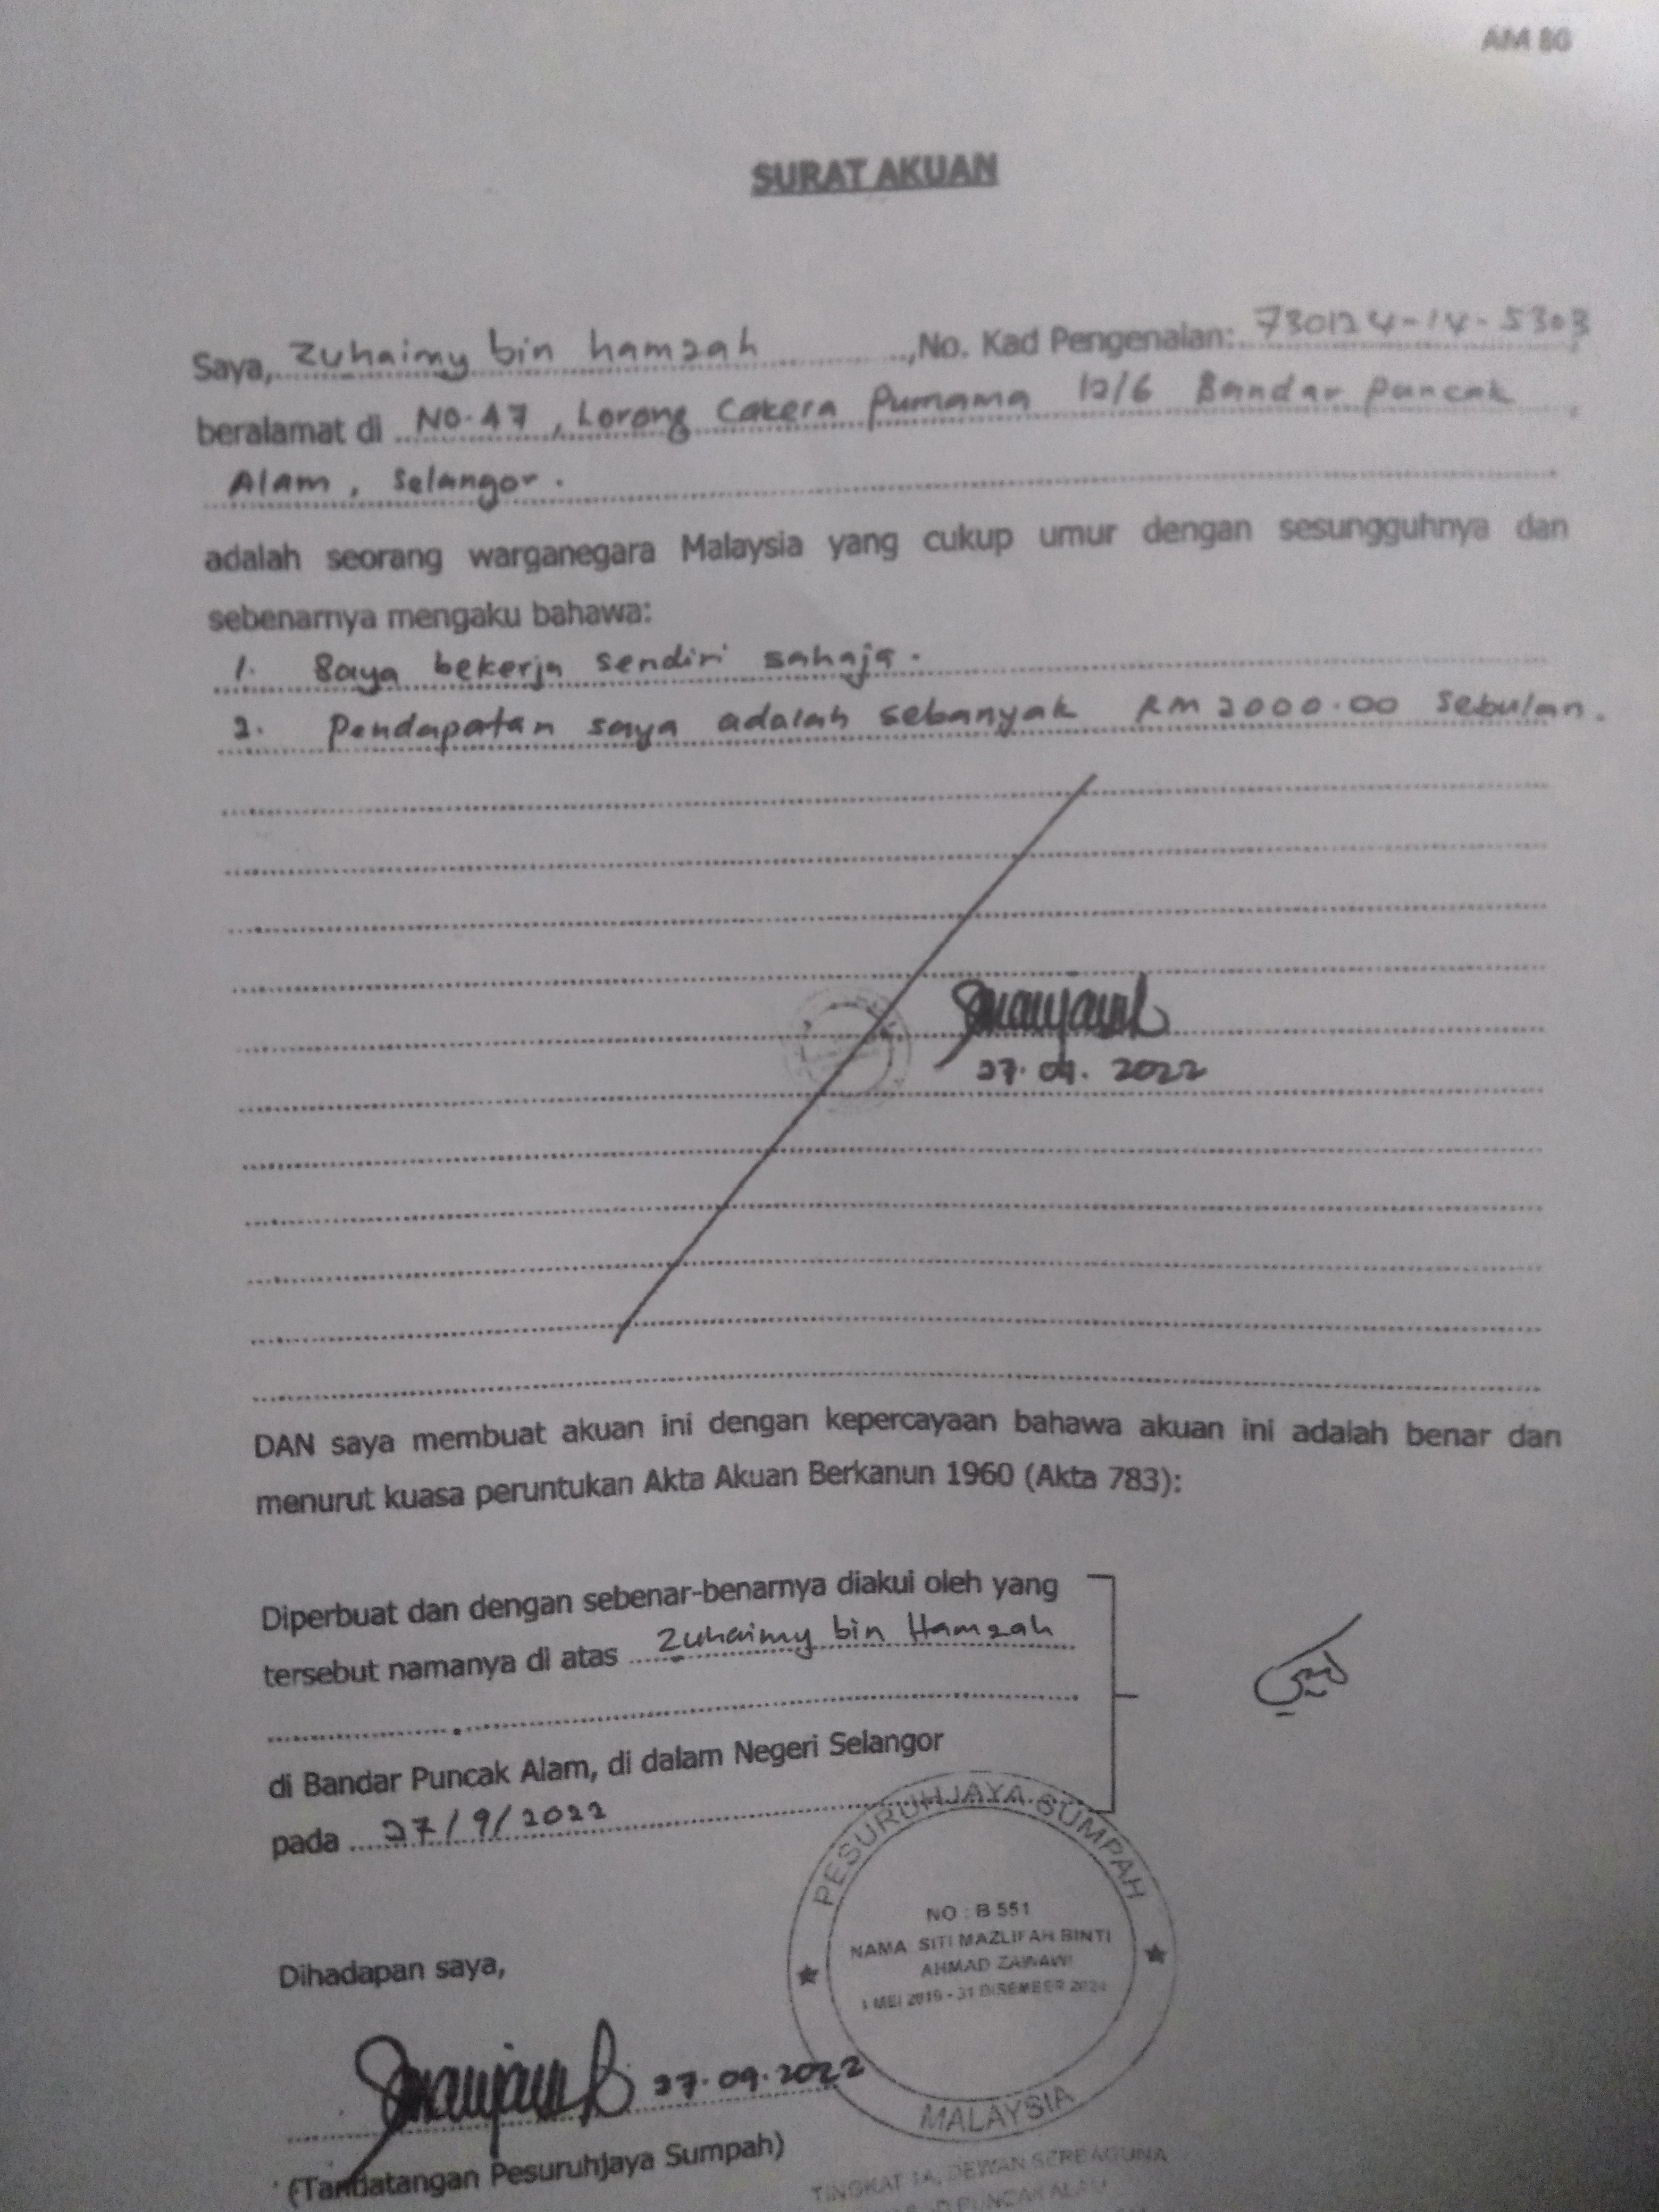 AM 86
SURAT AKUAN
Saya, Zuhaimy bin hamzah, No. Kad Pengenalan: 730124-14-5303
beralamat di No. 47, Lorong Cakera Purnama 12/6 Bandar Puncak
Alam, Selangor.
adalah seorang warganegara Malaysia yang cukup umur dengan sesungguhnya dan
sebenarnya mengaku bahawa:
1. Saya bekerja sendiri sahaja.
2. Pendapatan saya adalah sebanyak RM 2000.00 Sebulan.
27.09.2022
DAN saya membuat akuan ini dengan kepercayaan bahawa akuan ini adalah benar dan
menurut kuasa peruntukan Akta Akuan Berkanun 1960 (Akta 783):
Diperbuat dan dengan sebenar-benarnya diakui oleh yang
tersebut namanya di atas Zuhaimy bin Hamzah
di Bandar Puncak Alam, di dalam Negeri Selangor
pada 27/9/2022
PESURUHJAYA SUMPAH
NO : B 551
NAMA SITI MAZLIFAH BINTI
AHMAD ZAWAWI
1 MEI 2019 - 31 DISEMBER
MALAYSIA
Dihadapan saya,
27.09.2022
(Tandatangan Pesuruhjaya Sumpah)
TINGKAT 1A, DEWAN SERBAGUNA
PUNCAK ALAM